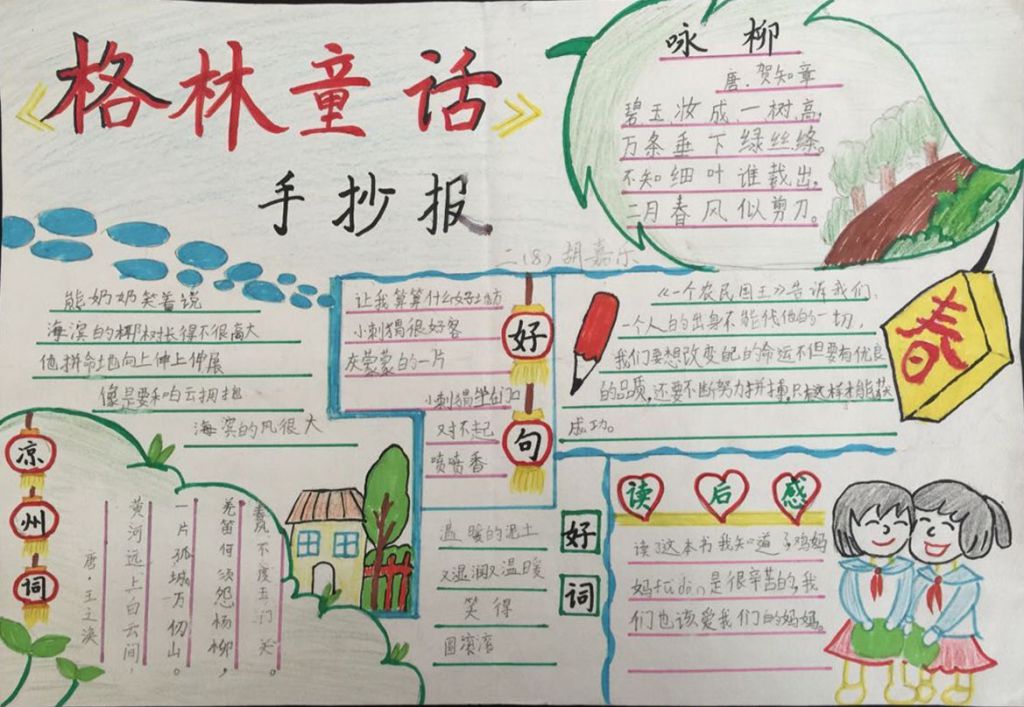 《格林童话》
手抄报
二(8) 胡嘉乐
咏柳
唐.贺知章
碧玉妆成一树高,
万条垂下绿丝绦。
不知细叶谁裁出,
二月春风似剪刀。
熊奶奶笑着说
海滨的椰树长得不很高大
他拼命地向上伸上伸展
像是要和白云拥抱
海滨的风很大
让我算算什么好地方
小刺猬很好客
灰蒙蒙的一片
小刺猬坐在门口
对不起
喷喷香
好句
《一个农民国王》告诉我们,
一个人的出身不能代他的一切,
我们要想改变自己的命运不但要有优良
的品质,还要不断努力拼搏,只有这样才能获
成功。
春
凉州词
唐·王之涣
黄河远上白云间,
一片孤城万仞山。
羌笛何须怨杨柳,
春风不度玉门关。
温暖的泥土
又湿润又温暖
笑得
圆滚滚
好词
读后感
读了这本书我知道了鸡妈
妈是很辛苦的,我
们也该爱我们的妈妈。